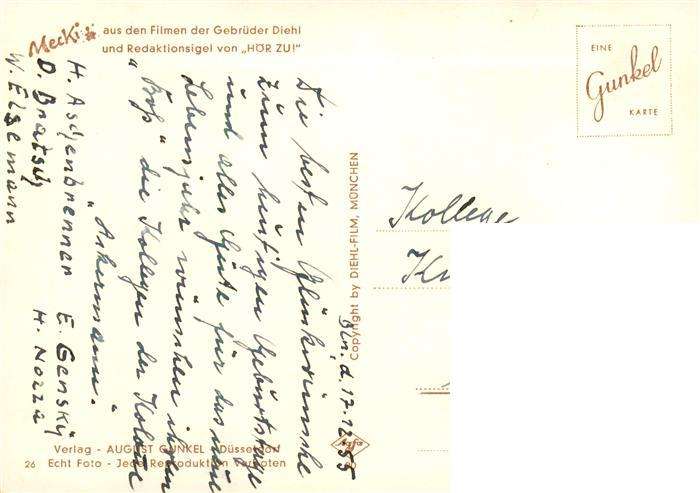 Mecki
aus den Filmen der Gebrüder Diehl
und Redaktionsigel von „HÖR ZU!"
EINE
Gunkel
KARTE
Bln. d. 17.12.55
Die besten Glückwünsche
zum heutigen Geburtstage
und alles Gute für das neue
Lebensjahr wünschen ihnen
„Boß" die Kollegen der Kolonne
„Ankermann".
H. Aschenbrenner E. Gensky
D. Bratsch H. Nozza
W. Elsemann
Copyright by DIEHL-FILM, MÜNCHEN
Kollege
Verlag - AUGUST GUNKEL - Düsseldorf
26 Echt Foto - Jede Reproduktion verboten
Agfa